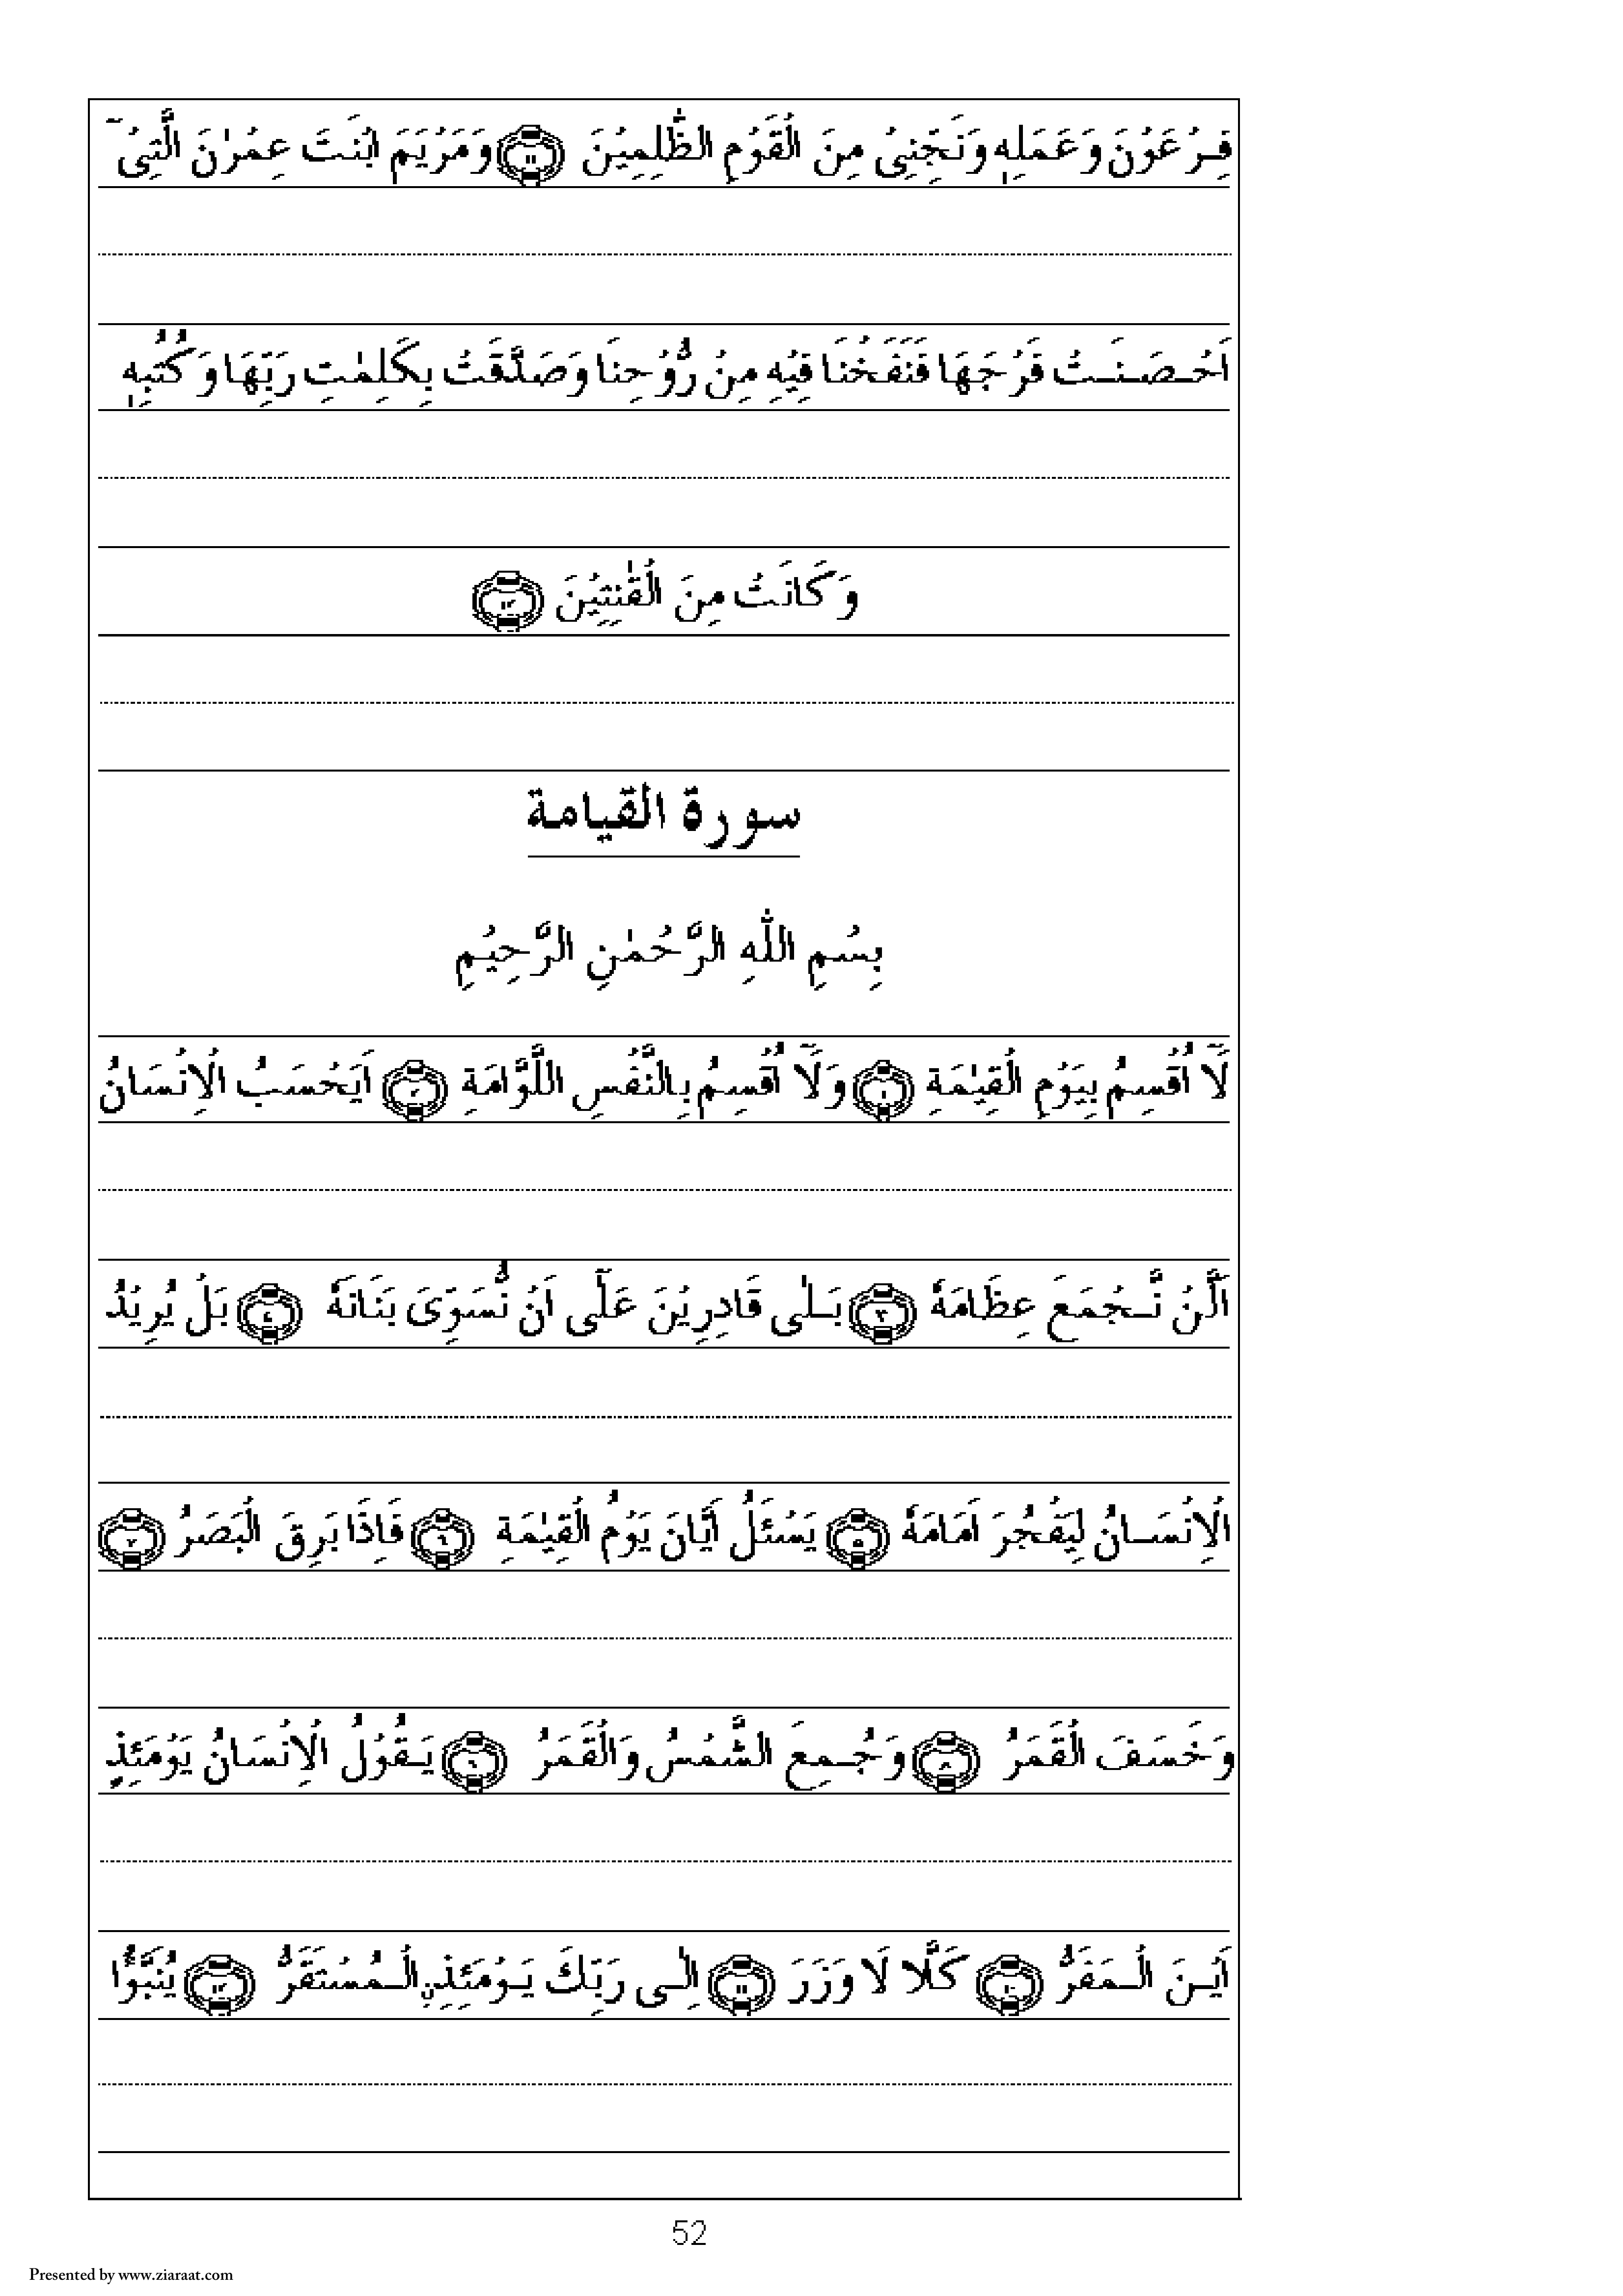 فِرْعَوْنَ وَعَمَلِهٖ وَنَجِّنِیْ مِنَ الْقَوْمِ الظّٰلِمِیْنَ ﴿۱۱﴾ وَمَرْیَمَ ابْنَتَ عِمْرٰنَ الَّتِیْۤ
اَحْصَنَتْ فَرْجَهَا فَنَفَخْنَا فِیْهِ مِنْ رُّوْحِنَا وَصَدَّقَتْ بِكَلِمٰتِ رَبِّهَا وَكُتُبِهٖ
وَكَانَتْ مِنَ الْقٰنِتِیْنَ ﴿۱۲﴾
سورة القيامة
بِسْمِ اللّٰهِ الرَّحْمٰنِ الرَّحِیْمِ
لَاۤ اُقْسِمُ بِیَوْمِ الْقِیٰمَةِ ﴿۱﴾ وَلَاۤ اُقْسِمُ بِالنَّفْسِ اللَّوَّامَةِ ﴿۲﴾ اَیَحْسَبُ الْاِنْسَانُ
اَلَّنْ نَّجْمَعَ عِظَامَهٗ ﴿۳﴾ بَلٰی قَادِرِیْنَ عَلٰۤی اَنْ نُّسَوِّیَ بَنَانَهٗ ﴿٤﴾ بَلْ یُرِیْدُ
الْاِنْسَانُ لِیَفْجُرَ اَمَامَهٗ ﴿۵﴾ یَسْئَلُ اَیَّانَ یَوْمُ الْقِیٰمَةِ ﴿٦﴾ فَاِذَا بَرِقَ الْبَصَرُ ﴿۷﴾
وَخَسَفَ الْقَمَرُ ﴿۸﴾ وَجُمِعَ الشَّمْسُ وَالْقَمَرُ ﴿۹﴾ یَقُوْلُ الْاِنْسَانُ یَوْمَئِذٍ
اَیْنَ الْمَفَرُّ ﴿۱۰﴾ كَلَّا لَا وَزَرَ ﴿۱۱﴾ اِلٰی رَبِّكَ یَوْمَئِذِنِ الْمُسْتَقَرُّ ﴿۱۲﴾ یُنَبَّؤُا
52
Presented by www.ziaraat.com